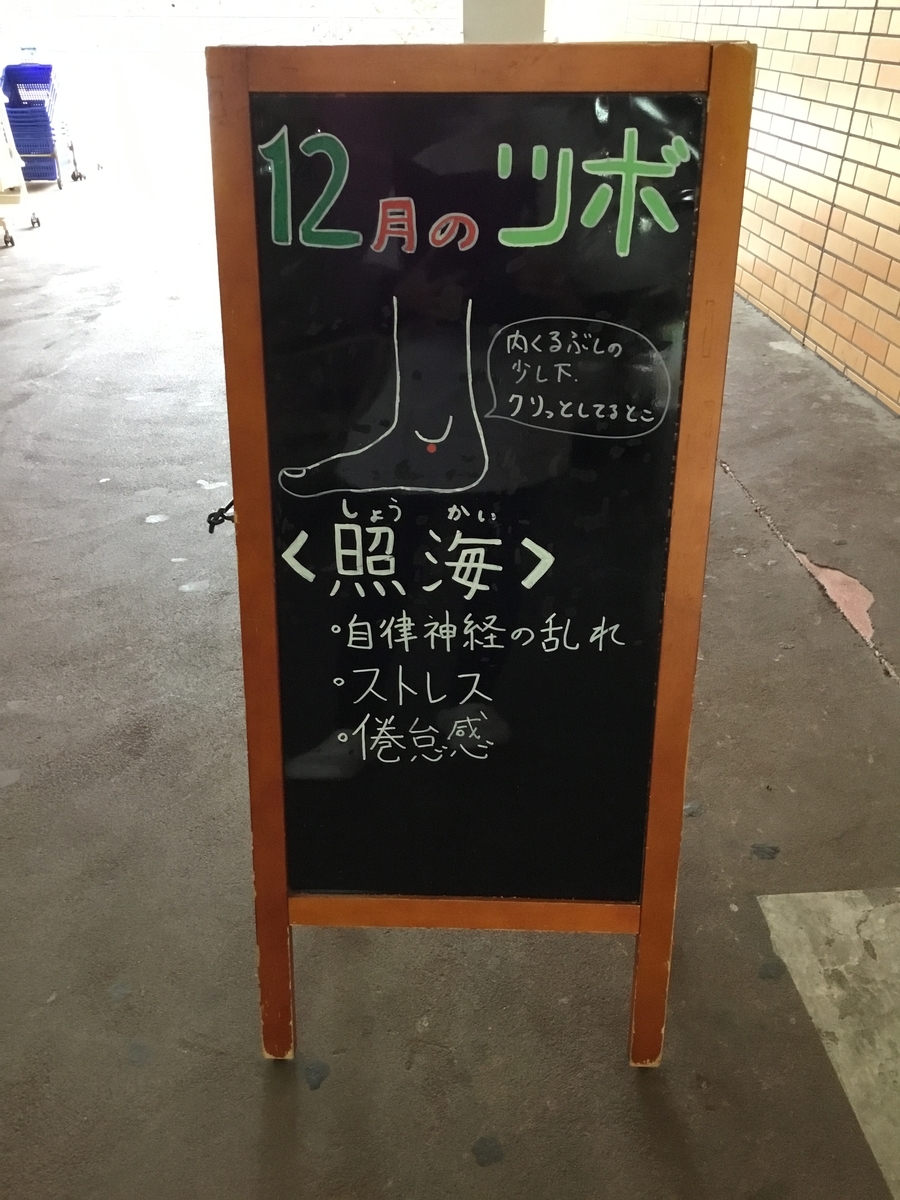 12月のツボ
内くるぶしの
少し下.
クリっとしてるとこ
しょう かい
<照海>
°自律神経の乱れ
°ストレス
°倦怠感